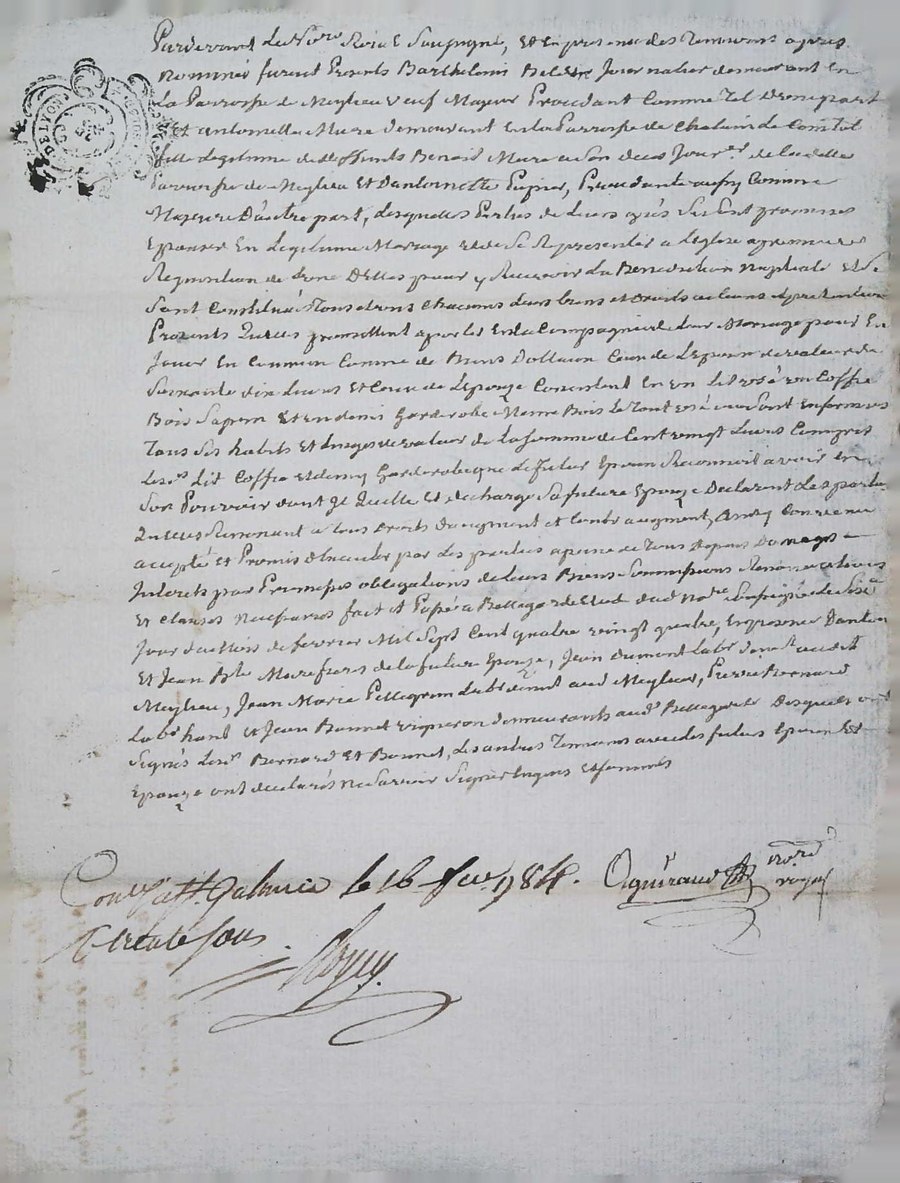 Pardevant Le No.re Roial Soussigné, et en presence des Temoins apres
Nommés furent Presents Barthelemi Journalier demeurant En
La Parroisse de Meylieu veuf Majeur Procedant Comme Tel D'une part
Et antoinette Mure Demeurant En la Parroisse de Chalain Le Comtal
fille Legitime de deffunts Benoit Mure a son deces Jour.er de laditte
Parroisse de Meylieu Et D'antoinette Pupier, Procedante aussy Comme
Majeure D'autre part, Lesquelles Parties de Leurs grés se sont promises
Epouser En Legitime Mariage et de se Representer a L'eglise a premiere
Requisition de L'une D'elles pour y Recevoir La Benediction Nuptiale Et se
sont Constitués Tous et uns Chacuns Leurs biens et Droits
Presents quelles promettent aporter En la Compagnie de leur Mariage pour En
Jouir En Commun Comme de Biens Dottaux Ceux de L'epoux de valeur de
Soixante dix Livres Et Ceux de L'epouze Consistent En un Lit rosé un Coffre
Bois Sapin Et un demi Garderobe Meme Bois Le Tout rosé ou sont Enfermés
Tous Ses habits Et Linges de valeur de La somme de Cent vingt Livres Compris
Les.ds Lit Coffre et demy Garderobe que Le futur Epoux Reconnoit avoir En
Son Pouvoir dont Il Quitte Et decharge Sa future Epouze Declarent Les parties
quelles Renoncent a tous Droits D'augment et Contr'augment, Ainsy Convenu
accepté Et Promis Executer par Les parties a peine de Tous depens Domages
Interets par Promesses obligations de Leurs Biens Soumissions Renonciations
Et Clauses Necessaires fait et Passé a Bellegarde Etude dud.t No.re Soussigné Le
Jour de fevrier Mil Sept Cent quatre vingt quatre, En presence D'antoine
Et Jean B.te Mure freres de la future Epouze, Jean Dumont Lab.r Dem.t aud.t
Meylieu, Jean Marie Pellegrin Lab.r demt aud Meylieu, Pierre Bernard
Et Jean Bonnet vigneron demeurants aud.t Bellegarde Desquels ont
Signés Les.ds Bernard Et Bonnet, Les autres Temoins avec Les futurs Epoux Et
Epouze ont declarés Ne Savoir Signer Enquis Et Sommés
Conlle a St. Galmier le 16 fev. 1784.
sous
No.re royal